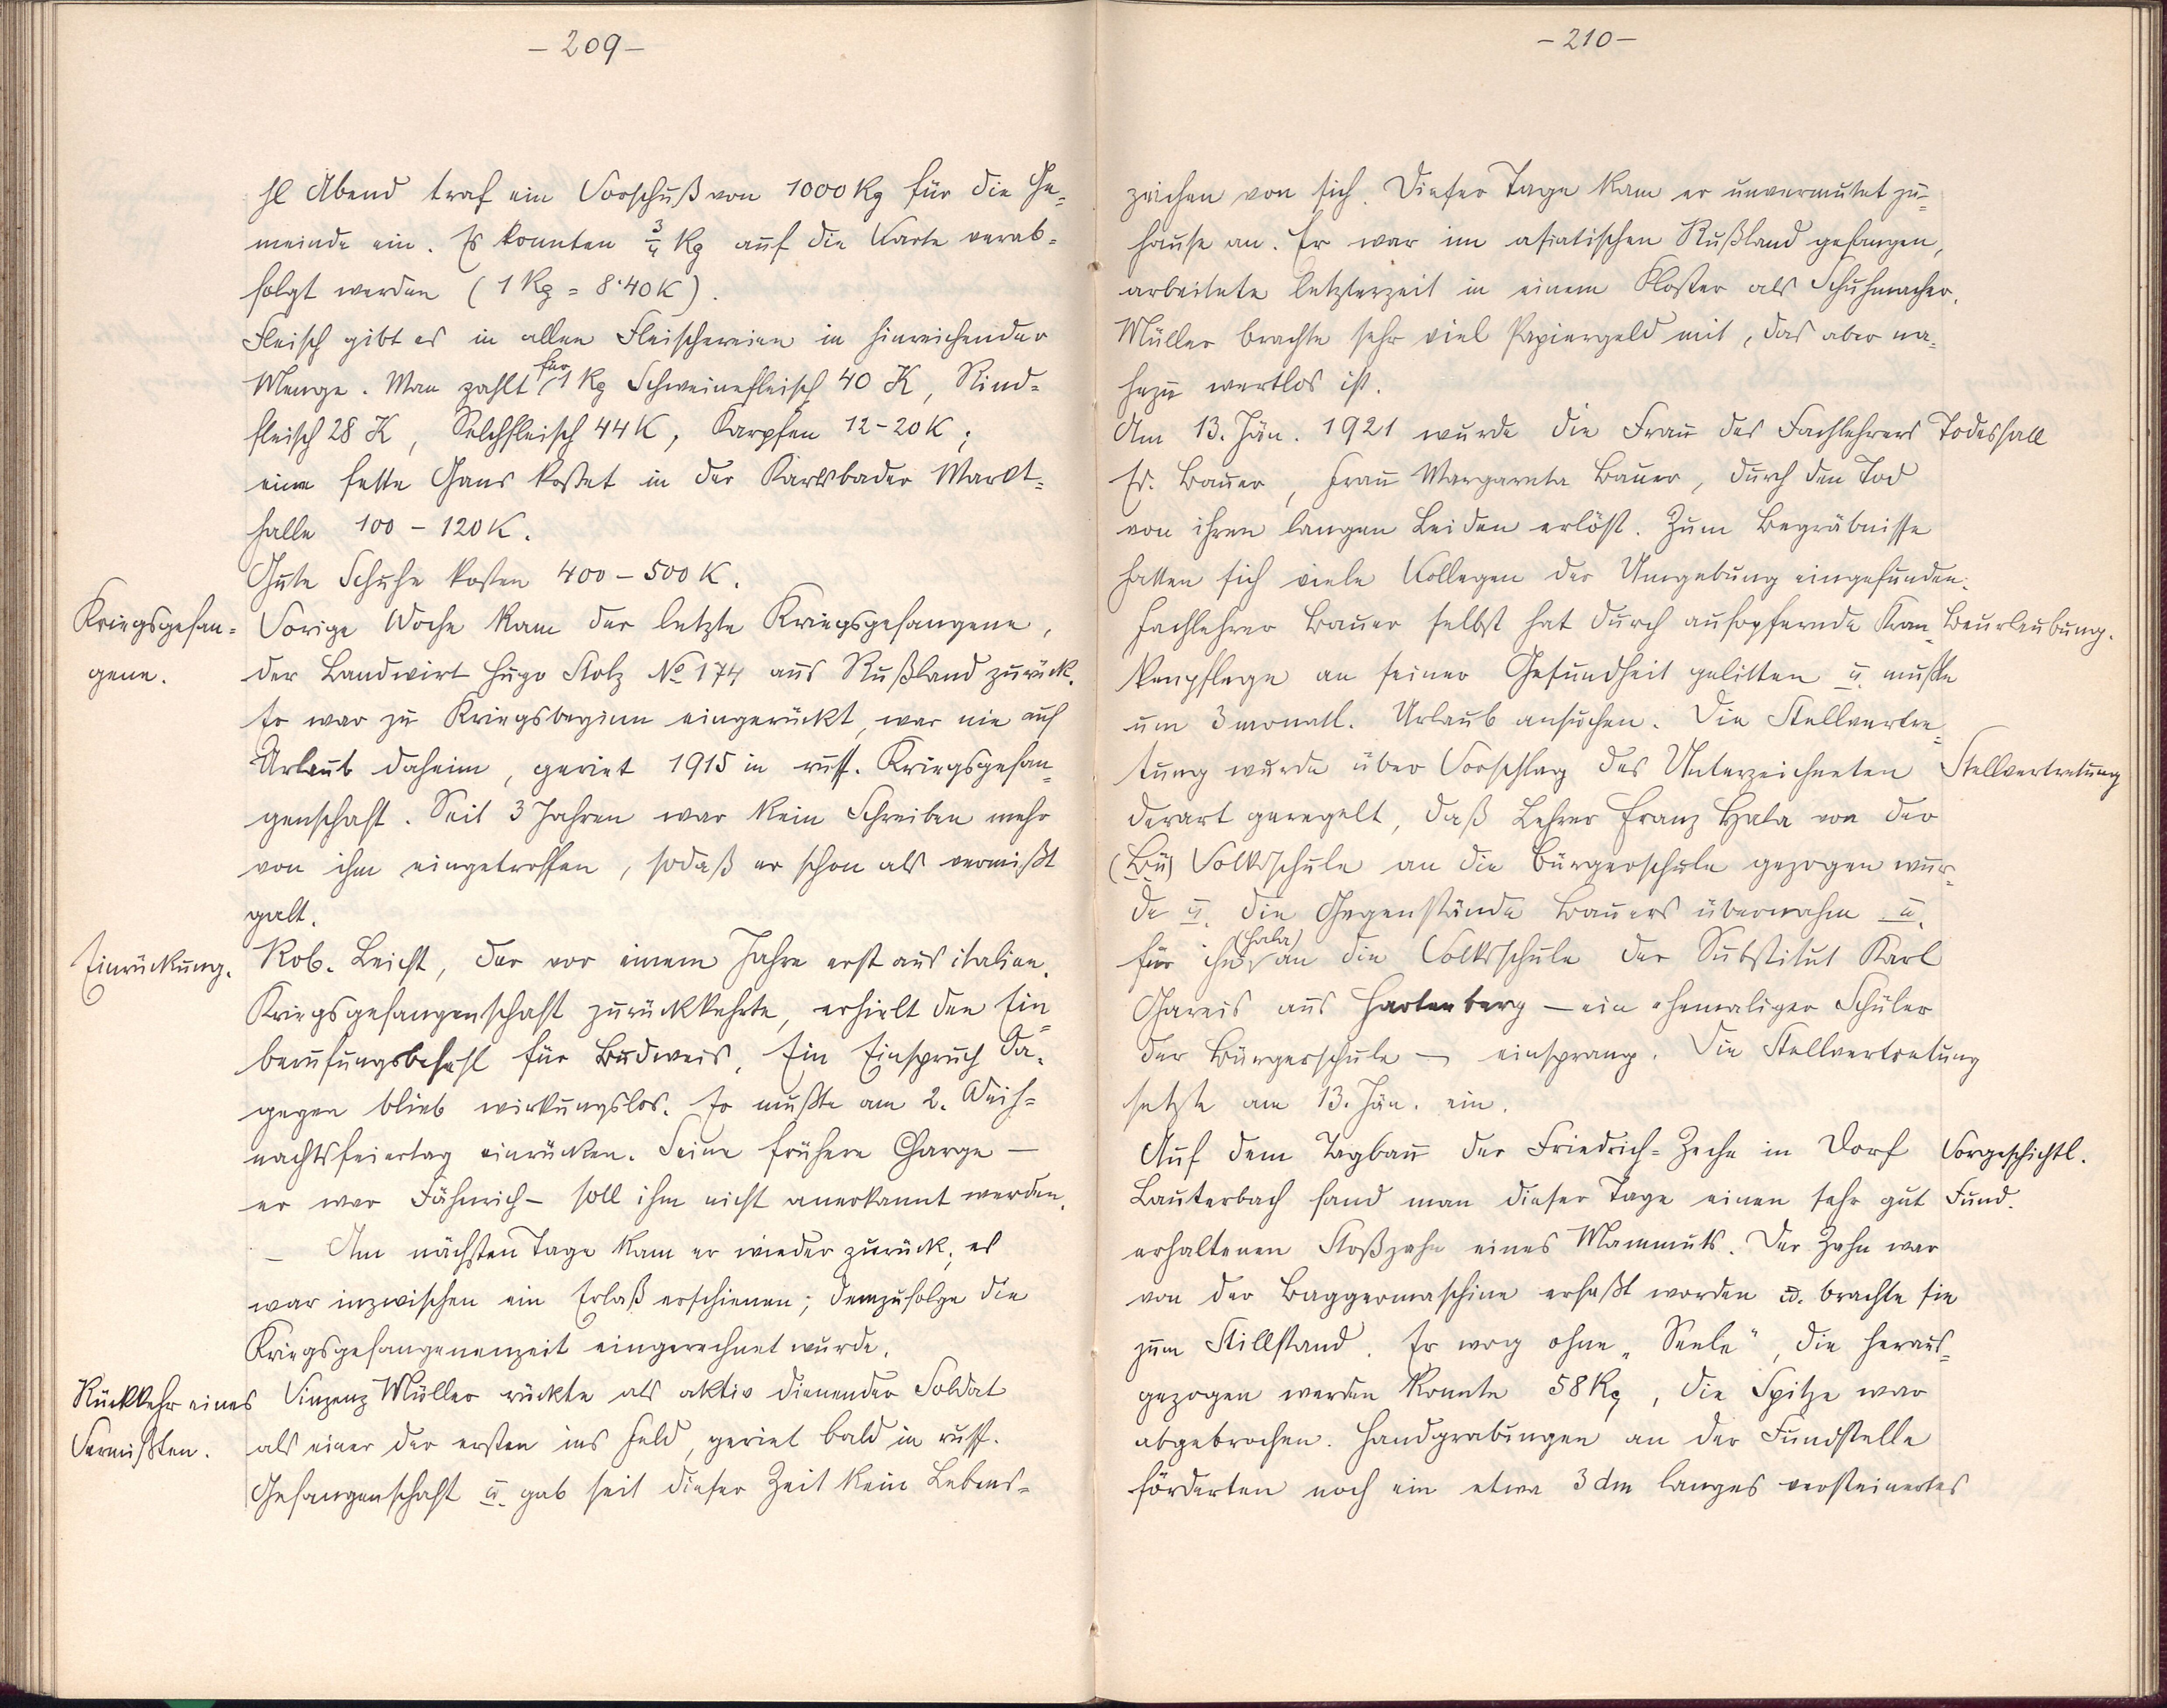 -209-
hl Abend traf ein Vorschuß von 1000 Kg für die Ge-
meinde ein. Es konnten 3/4 Kg auf die Karte verab-
folgt werden (1 Kg = 8·40 K).
Fleisch gibt es in allen Fleischereien in hinreichender
Menge. Man zahlt für 1 Kg Schweinefleisch 40 K, Rind-
fleisch 28 K, Selchfleisch 44 K, Karpfen 12-20 K;
eine fette Gans kostet in der Karlsbader Markt-
halle 100-120 K.
Gute Schuhe kosten 400-500 K.
Kriegsgefan-
gene.
Vorige Woche kam der letzte Kriegsgefangene,
der Landwirt Hugo Stolz No 174 aus Rußland zurück.
Er war zu Kriegsbeginn eingerückt, war nie auf
Urlaub daheim, geriet 1915 in russ. Kriegsgefan-
genschaft. Seit 3 Jahren war kein Schreiben mehr
von ihm eingetroffen, sodaß er schon als vermißt
galt.
Einrückung.
Rob. Leicht, der vor einem Jahre erst aus italien.
Kriegsgefangenschaft zurückkehrte, erhielt den Ein-
berufungsbefehl für Budweis. Ein Einspruch da-
gegen blieb wirkungslos. Er mußte am 2. Weih-
nachtsfeiertag einrücken. Seine frühere Charge —
er war Fähnrich — soll ihm nicht anerkannt werden.
— Am nächsten Tage kam er wieder zurück, es
war inzwischen ein Erlaß erschienen; demzufolge die
Kriegsgefangenenzeit eingerechnet wurde.
Rückkehr eines
Vermißten.
Vinzenz Müller rückte als aktiv dienender Soldat
als einer der ersten ins Feld, geriet bald in russ.
Gefangenschaft u. gab seit dieser Zeit kein Lebens-
-210-
zeichen von sich. Dieser Tage kam er unvermutet zu-
hause an. Er war im asiatischen Rußland gefangen,
arbeitete letzterzeit in einem Kloster als Schuhmacher.
Müller brachte sehr viel Papiergeld mit, das aber na-
hezu wertlos ist.
Am 13. Jän. 1921 wurde die Frau des Fachlehrers
Todesfall
Er. Bauer, Frau Margareta Bauer, durch den Tod
von ihren langen Leiden erlöst. Zum Begräbnisse
hatten sich viele Kollegen der Umgebung eingefunden.
Fachlehrer Bauer selbst hat durch aufopfernde Kran-
Beurlaubung.
kenpflege an seiner Gesundheit gelitten u. mußte
um 3 monatl. Urlaub ansuchen. Die Stellvertre-
tung wurde über Vorschlag des Unterzeichneten
Stellvertretung
derart geregelt, daß Lehrer Franz Hala von der
(Bü) Volksschule an die Bürgerschule gezogen wur-
de u. die Gegenstände Bauers übernahm u.
für ihn (Hala) an die Volksschule der Substitut Karl
Gareis aus Hartenberg — ein ehemaliger Schüler
der Bürgerschule — einsprang. Die Stellvertretung
setzte am 13. Jän. ein.
Auf dem Tagbau der Friedrich-Zeche in Dorf
Vorgeschichtl.
Fund.
Lauterbach fand man dieser Tage einen sehr gut
erhaltenen Stoßzahn eines Mammuts. Der Zahn war
von der Baggermaschine erfaßt worden u. brachte sie
zum Stillstand. Er wog ohne „Seele", die heraus-
gezogen werden konnte 58 Kg, die Spitze war
abgebrochen. Handgrabungen an der Fundstelle
förderten noch ein etwa 3 dm langes versteinertes